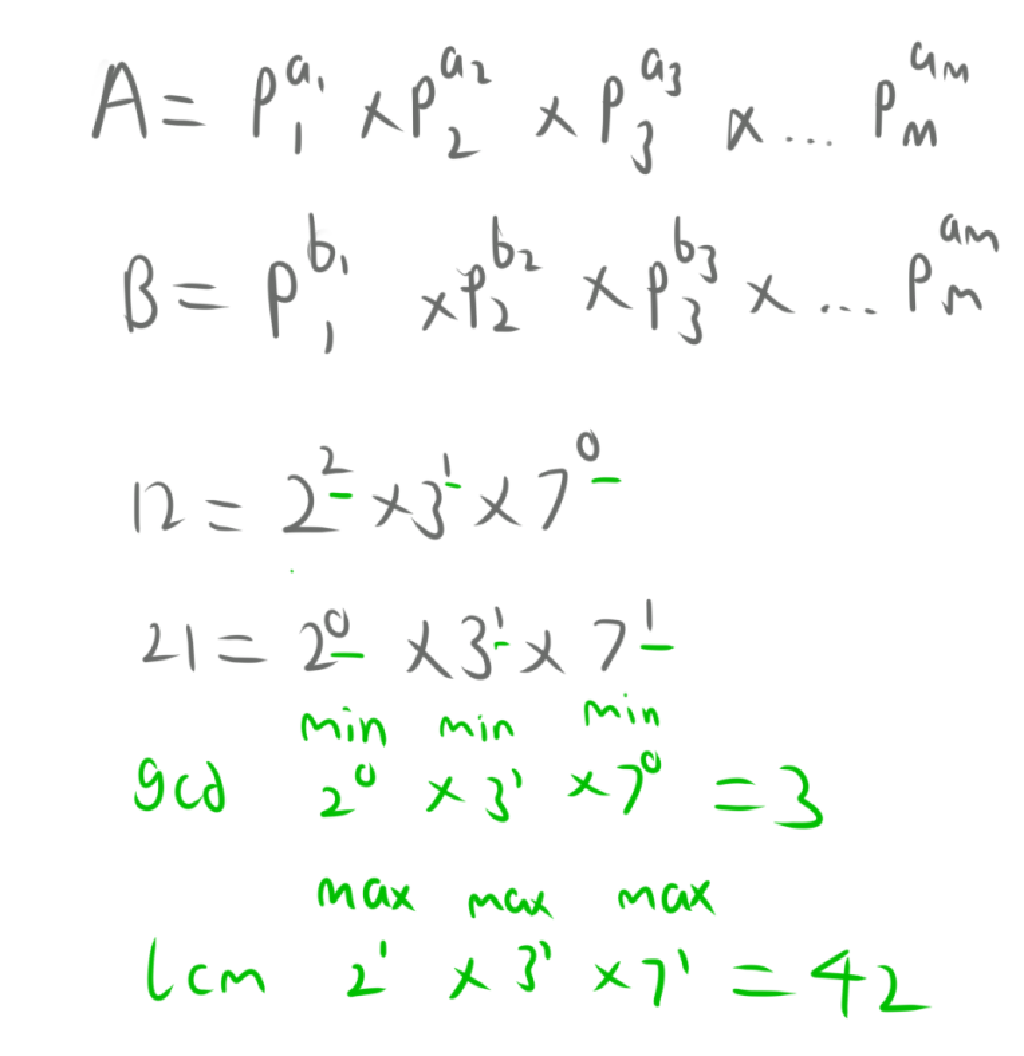 A = P₁^a₁ × P₂^a₂ × P₃^a₃ × ... Pₘ^aₘ
B = P₁^b₁ × P₂^b₂ × P₃^b₃ × ... Pₘ^aₘ
12 = 2² × 3¹ × 7⁰
21 = 2⁰ × 3¹ × 7¹
min min min
gcd 2⁰ × 3¹ × 7⁰ = 3
max max max
lcm 2¹ × 3¹ × 7¹ = 42